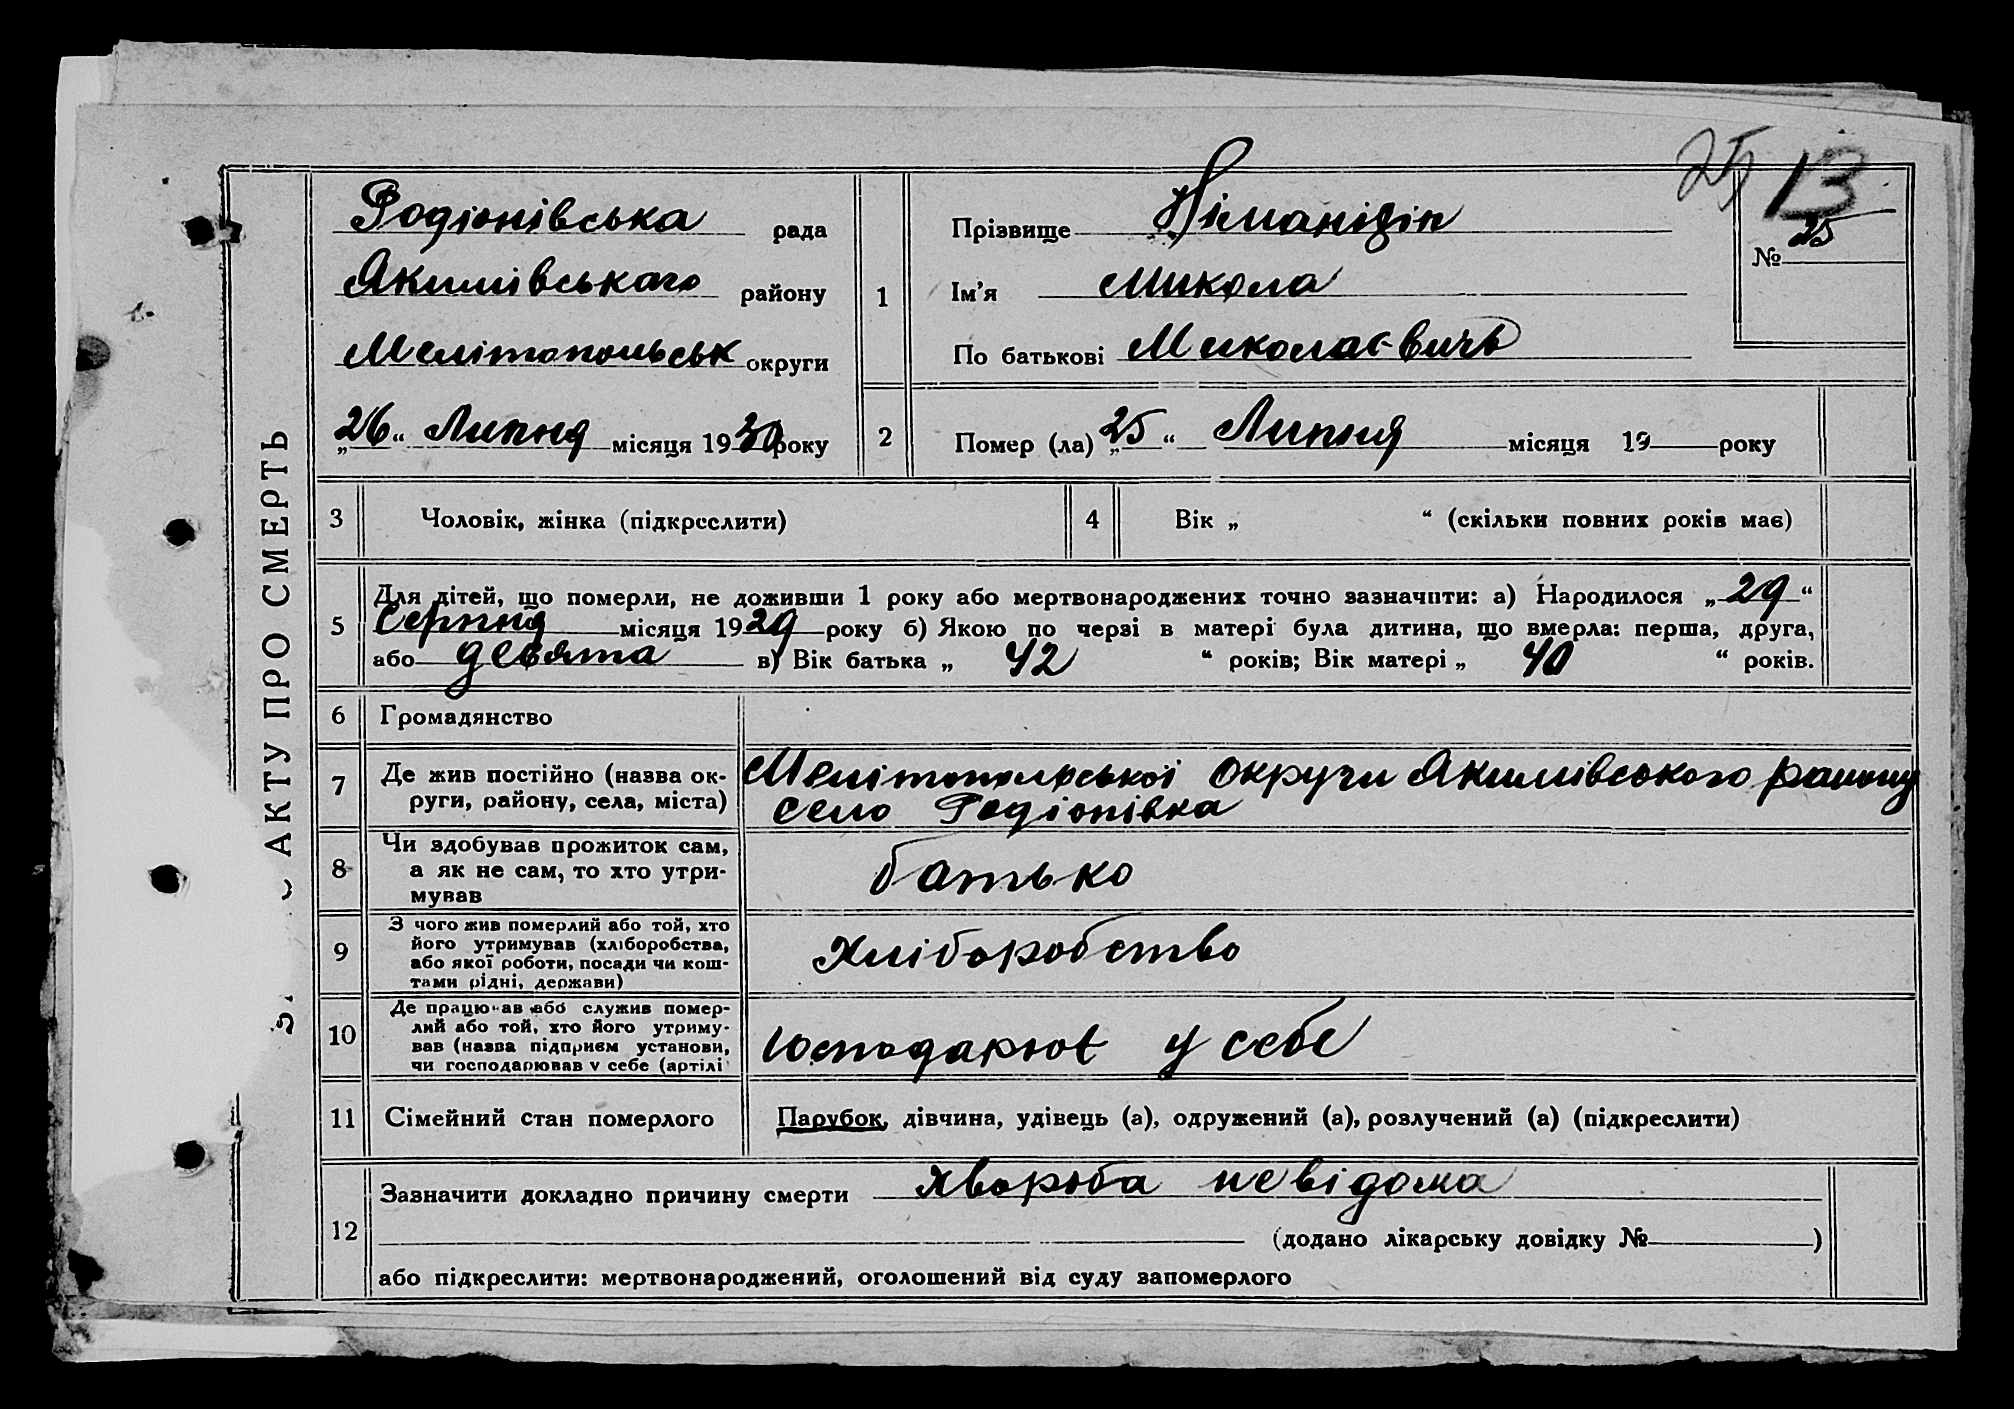 25 13
АКТУ ПРО СМЕРТЬ
Родіонівська рада
Якимівського району
Мелітопольськ округи
„26“ Липня місяця 1930 року
1
Прізвище
Ім’я Микола
По батькові Миколаєвичь
№ 25
2
Помер (ла) „25“ Липня місяця 19 року
3 Чоловік, жінка (підкреслити)
4 Вік „ “ (скільки повних років має)
5
Для дітей, що померли, не доживши 1 року або мертвонароджених точно зазначити: а) Народилося „29“
Серпня місяця 1929 року б) Якою по черзі в матері була дитина, що вмерла: перша, друга,
або девята в) Вік батька „ 42 “ років; Вік матері „ 40 “ років.
6 Громадянство
7
Де жив постійно (назва ок-
руги, району, села, міста)
Мелітопольської округи Якимівського району
село Родіонівка
8
Чи здобував прожиток сам,
а як не сам, то хто утри-
мував
батько
9
З чого жив померлий або той, хто
його утримував (хліборобства,
або якої роботи, посади чи кош-
тами рідні, держави)
Хліборобство
10
Де працював або служив помер-
лий або той, хто його утриму-
вав (назва підприєм установи,
чи господарював у себе (артілі
у себе
11 Сімейний стан померлого
Парубок, дівчина, удівець (а), одружений (а), розлучений (а) (підкреслити)
12
Зазначити докладно причину смерти хвороба невідома
(додано лікарську довідку № )
або підкреслити: мертвонароджений, оголошений від суду запомерлого